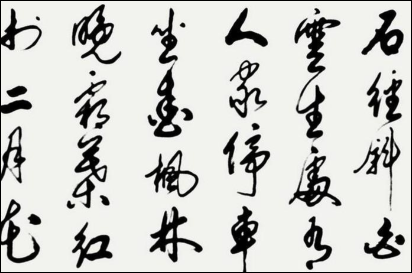 石徑斜白
雲生處有
人家停車
坐愛楓林
晚霜葉紅
於二月花